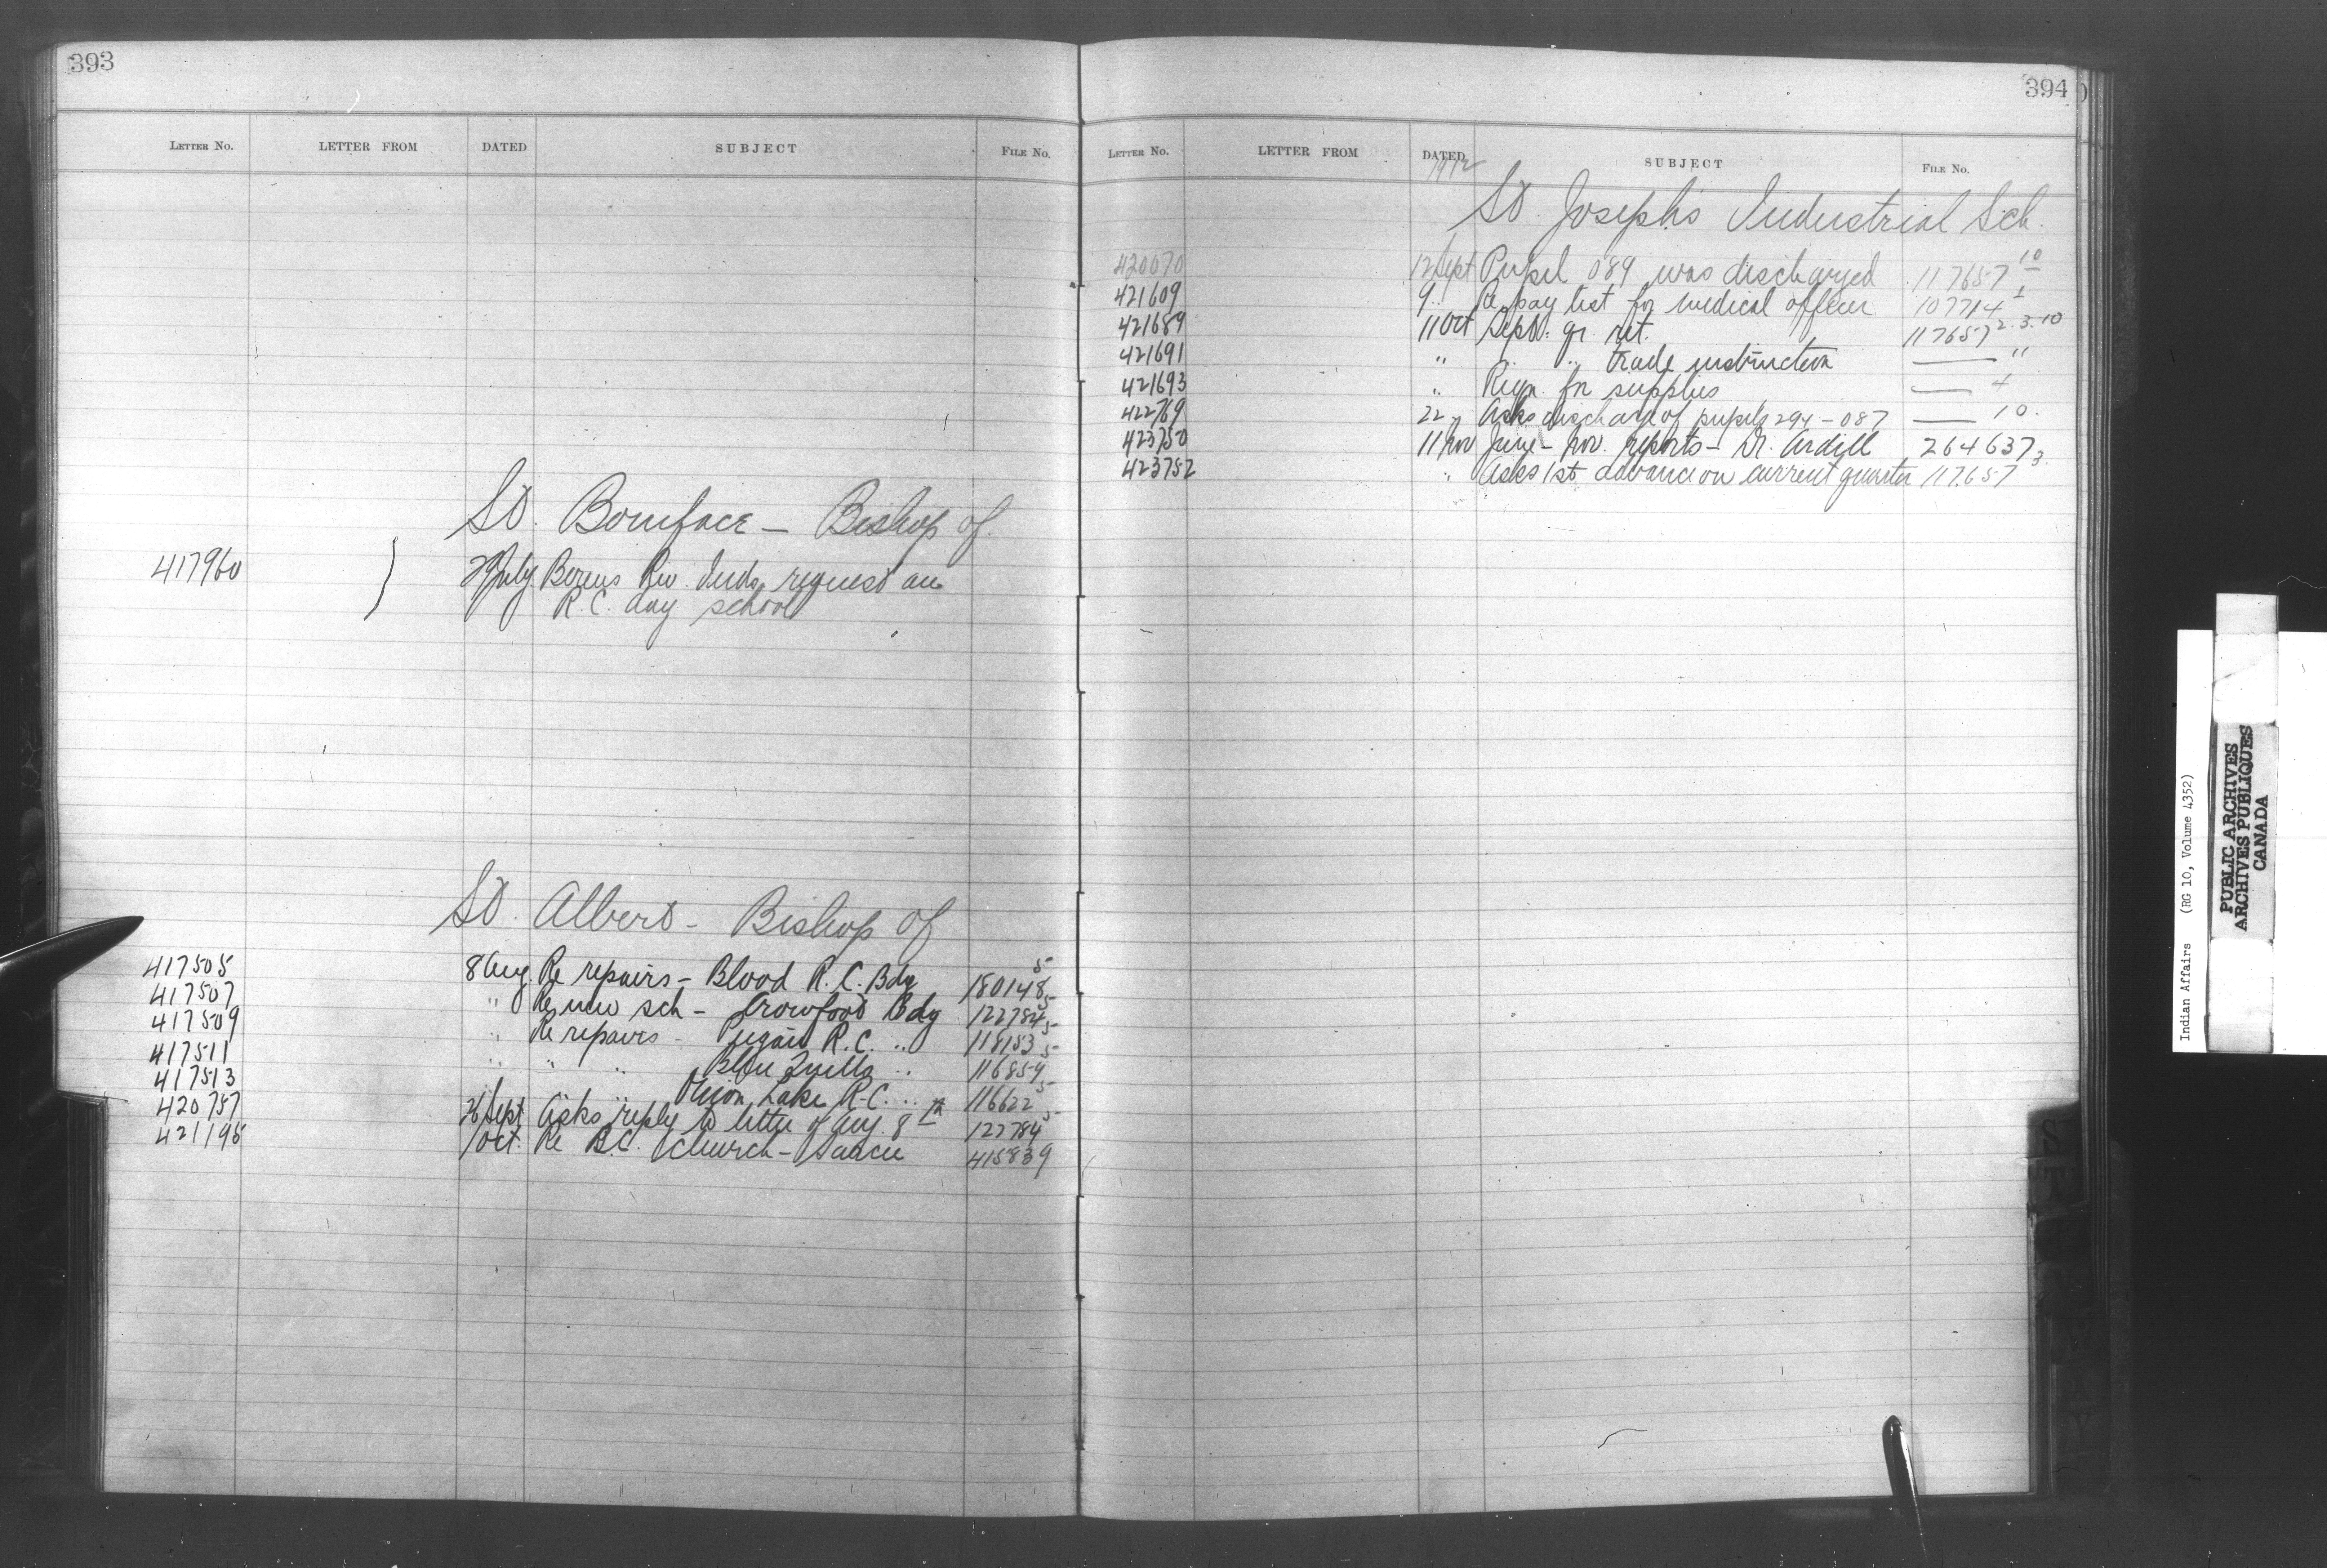 393
LETTER No. LETTER FROM DATED SUBJECT FILE No.
St. Boniface — Bishop of.
417960 July Berens Riv. Inds. request an
R.C. day school
St. Albert - Bishop of
417505 8 Aug. Re repairs - Blood R.C. Bdg 180148 5
417507 " Re new sch - Crowfoot Bdg 122784 5
417509 " Re repairs - Peigan R.C. " 118153 5
417511 " " " Blue Quills " 116859 5
417513 " " " Onion Lake R.C. " 116622 5
420757 26 Sept Asks reply to letter of Aug. 8th 122784 5
421195 1 Oct. Re R.C. Church - 415839
394
LETTER No. LETTER FROM DATED SUBJECT FILE No.
1912
St. Joseph's Industrial Sch.
420070 12 Sept Pupil 089 was discharged 117657 10
421609 9 " Re pay list for medical officer 107714 1
421689 11 Oct Sept. qr. ret. 117657 2.3.10
421691 " " " trade instruction — "
421693 " Reqn. for supplies — 4
422769 22 " Asks discharge of pupils 294 - 087 — 10.
423750 11 Nov June - Nov. reports - Dr. Ardill 264637
423752 " Asks 1st advance on current quarter 117657 3
Indian Affairs (RG 10, Volume 4352)
PUBLIC ARCHIVES
ARCHIVES PUBLIQUES
CANADA